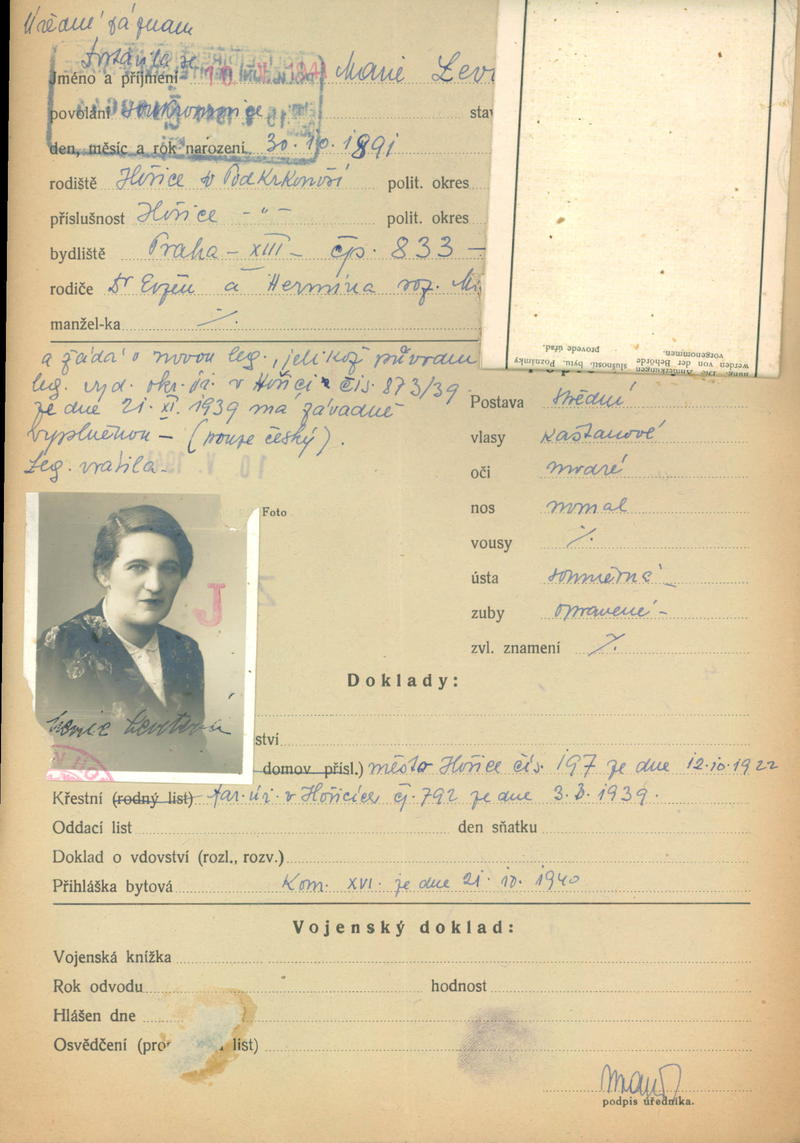 Úřední záznam
Dostavila se
Jméno a příjmení Marie Lev
povolání soukromnice stav
den, měsíc a rok narození 30.10.1891
rodiště Hořice v Podkrkonoší polit. okres
příslušnost Hořice -"- polit. okres
bydliště Praha - XIII - čp. 833 -
rodiče Dr Evžen a Hermína roz.
manžel-ka ./.
a žádá o novou leg., jelikož původní
leg. vyd. okr. úř. v Hořici čís 873/39
ze dne 21. XI. 1939 má závadně
vyplněnou - (pouze český).
Leg. vrátila -
provede úřad.
vorgenommen.
sluĭnosti, bytu. Poznámky
werden von der Behörde
nung. Die Anmerkungen
10 V. 194
Postava střední
vlasy kaštanové
oči modré
nos normal
vousy ./.
ústa souměrná
zuby opravené -
zvl. znamení ./.
Foto
J
Doklady:
ství
domov. přísl.) město Hořice čís. 197 ze dne 12.10.1922
Křestní (rodný list) far. úř. v Hořicích čj. 792 ze dne 3. 1939.
Oddací list den sňatku
Doklad o vdovství (rozl., rozv.)
Přihláška bytová Kom. XVI. ze dne 21. 10. 1940
Vojenský doklad:
Vojenská knížka
Rok odvodu hodnost
Hlášen dne
Osvědčení (pro list)
podpis úředníka.